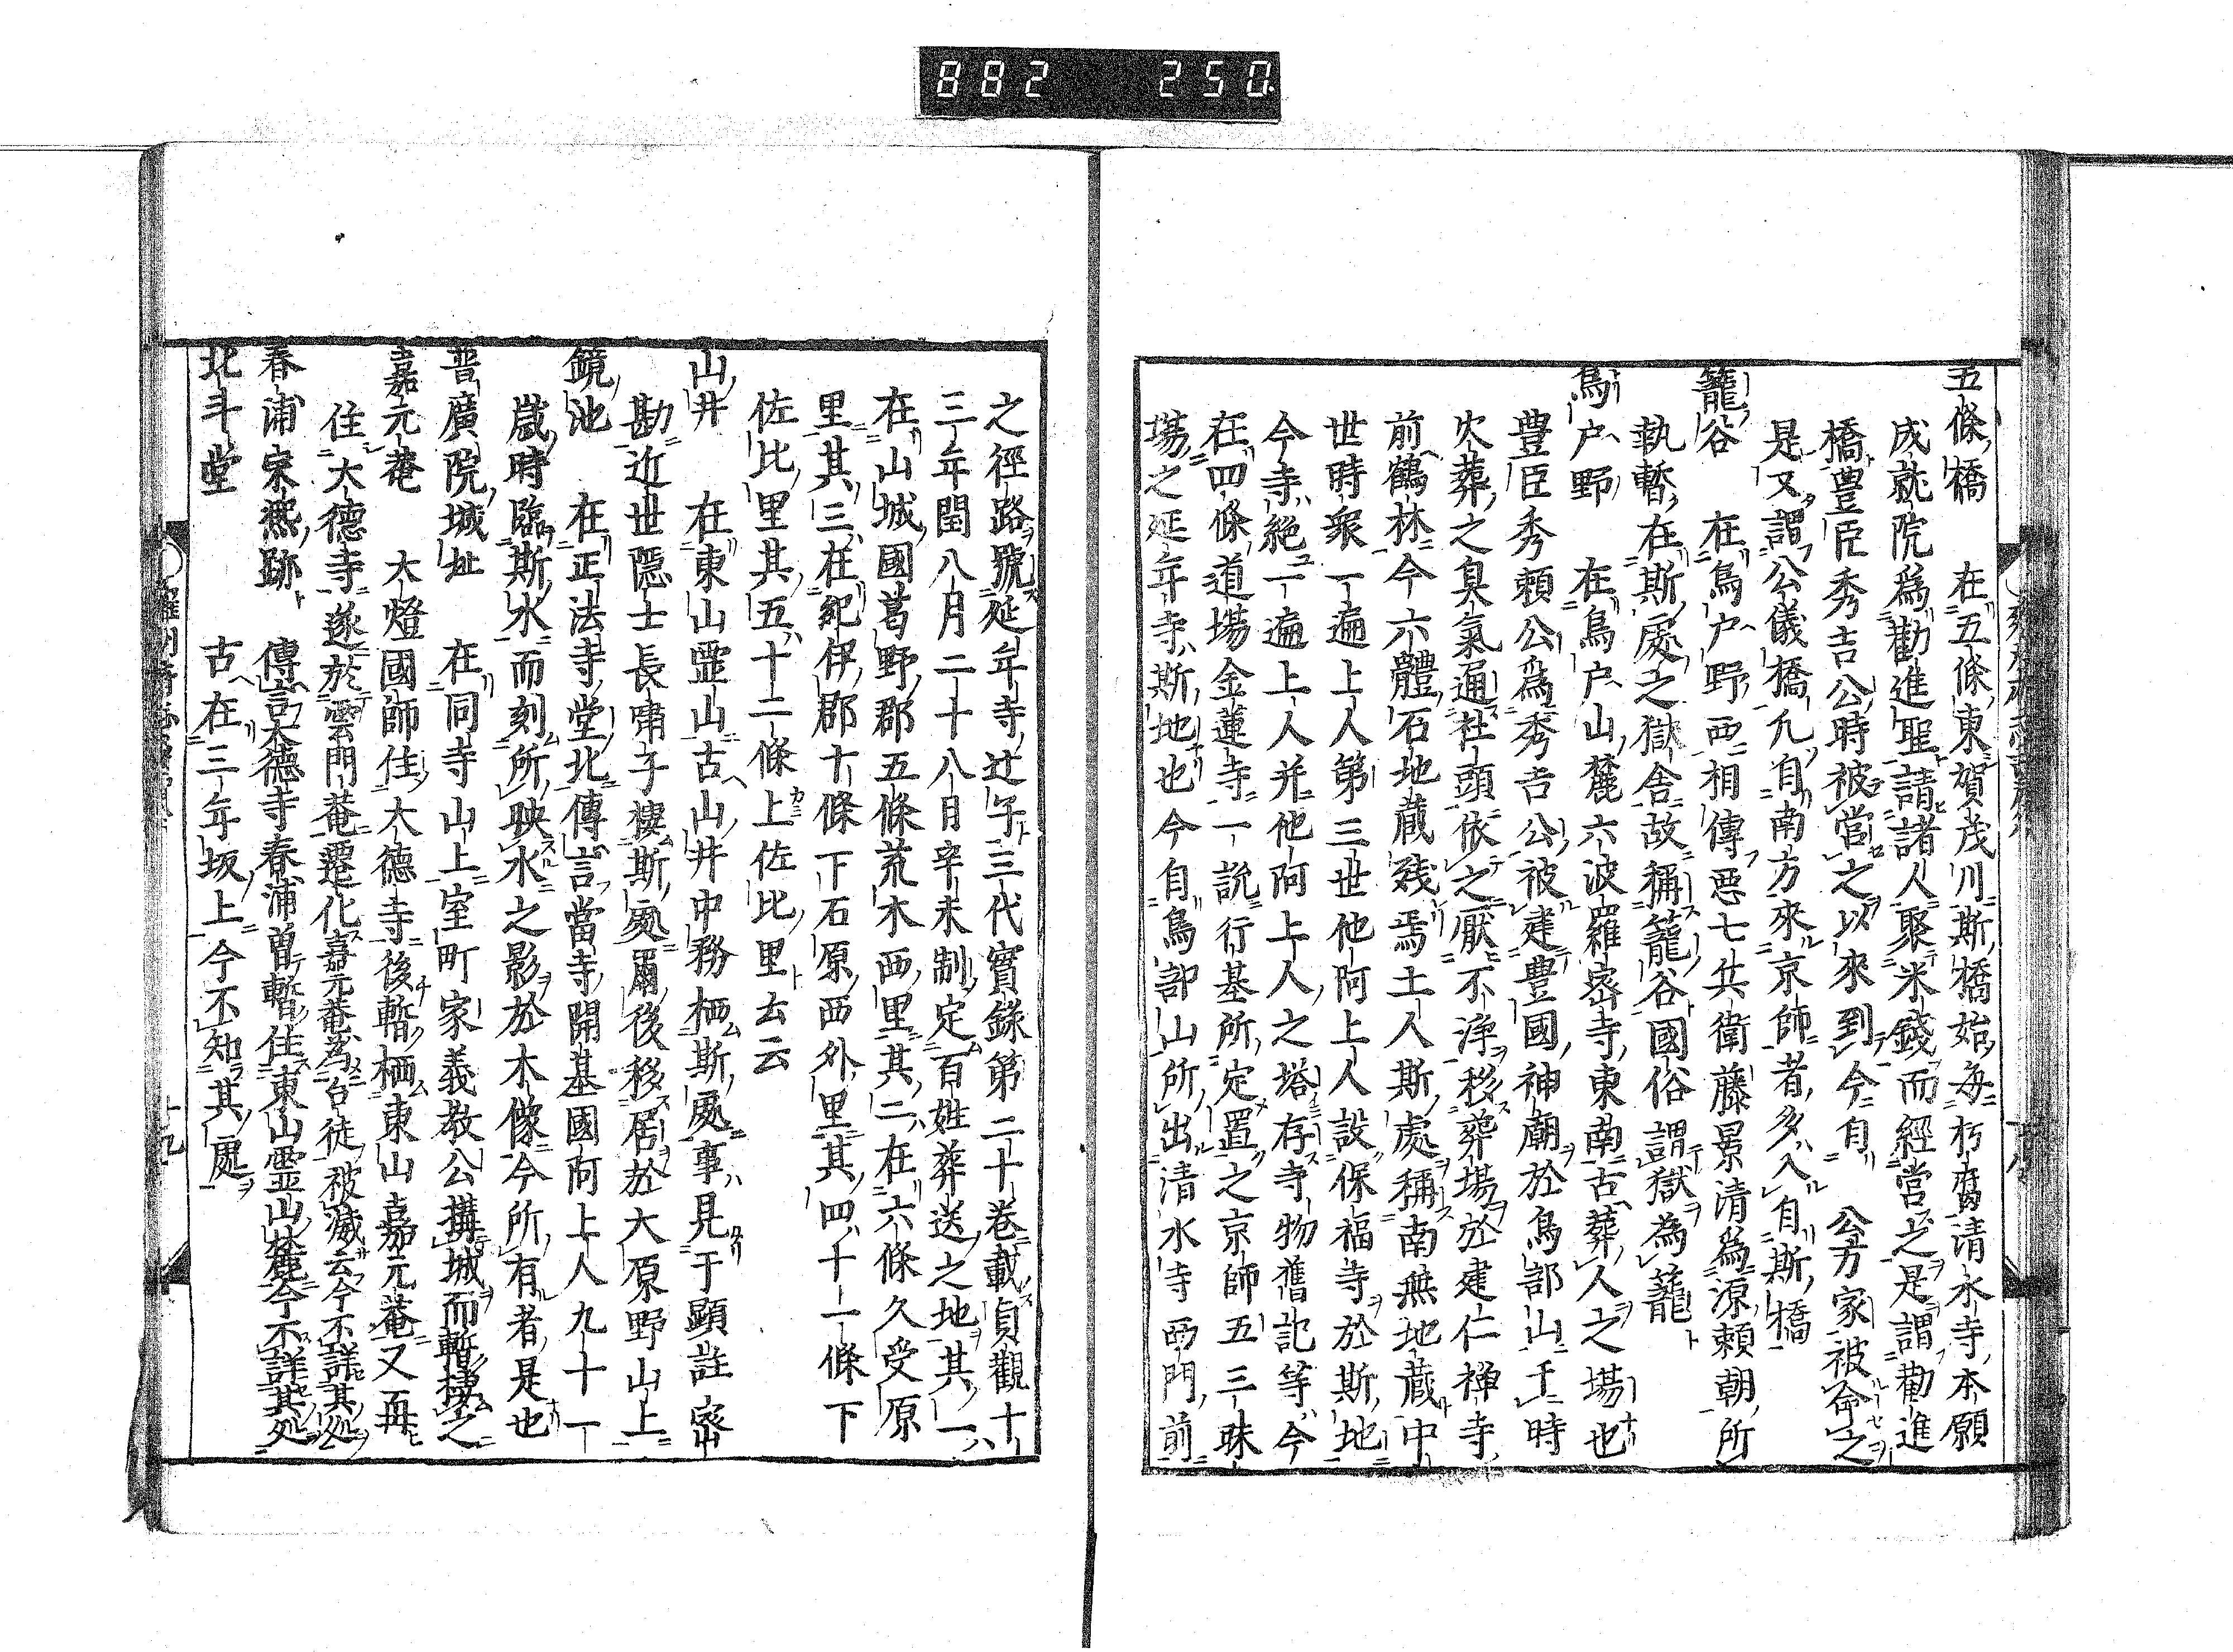 882 250
五條橋 在五條東賀茂川斯橋始毎朽腐清水寺本願
成就院爲勸進聖請諸人聚米錢而經営之是謂勸進
橋豊臣秀吉公時被営之以來到今自 公方家被命之
是又謂公儀橋凢自南方來京師者多入自斯橋
籠谷 在鳥戸野西相傳悪七兵衛藤景清爲源頼朝所
執暫在斯處之獄舎故稱籠谷國俗謂獄為籠
鳥戸野 在鳥戸山麓六波羅密寺東南古葬人之塲也
豊臣秀頼公爲秀吉公被建豊國神廟於鳥部山于時
火葬之臭氣通社頭依之厭不浄移葬塲於建仁禅寺
前鶴林今六體石地蔵残焉土人斯處稱南無地蔵中
世時衆一遍上人第三世他阿上人設保福寺於斯地
今寺絶一遍上人并他阿上人之塔存寺物舊記等今
在四條道塲金蓮寺一説行基所定置之京師五三昧
塲之延年寺斯地也今自鳥部山所出清水寺西門前
之徑路號延年寺辻子三代實録第二十巻載貞觀十
三年閏八月二十八日辛未制定百姓葬送之地其一
在山城國葛野郡五條荒木西里其二在六條久受原
里其三在紀伊郡十條下石原西外里其四十一條下
佐比里其五十二條上佐比里云云
山井 在東山霊山古山井中務栖斯處事見于顕註密
勘近世隠士長嘯子棲斯處爾後移居於大原野山上
鏡池 在正法寺堂北傳言當寺開基國阿上人九十一
歳時臨斯水而刻所映水之影於木像今所有者是也
普廣院城址 在同寺山上室町家義教公搆城而暫棲之
嘉元菴 大燈國師住大徳寺後暫栖東山嘉元菴又再
住大徳寺遂於雲門菴遷化嘉元菴為台徒被滅云今不詳其処
春浦宋熈跡 傳言大徳寺春浦曽暫住東山霊山麓今不詳其処
北斗堂 古在三年坂上今不知其處
十九